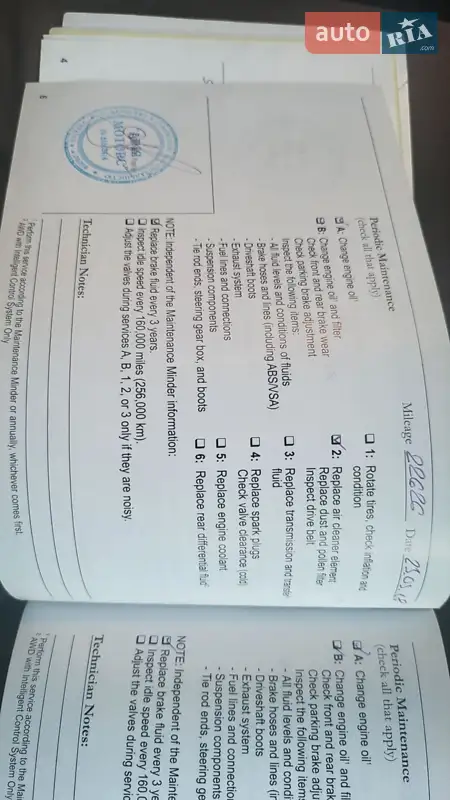 auto RIA .com
4
6
Periodic Maintenance
(check all that apply)
Mileage
Date
A: Change engine oil¹
B: Change engine oil¹ and filter
Check front and rear brake wear
Check parking brake adjustment
Inspect the following items:
- All fluid levels and conditions of fluids
- Brake hoses and lines (including ABS/VSA)
- Driveshaft boots
- Exhaust system
- Fuel lines and connections
- Suspension components
- Tie rod ends, steering gear box, and boots
1: Rotate tires, check inflation and
condition
2: Replace air cleaner element
Replace dust and pollen filter
Inspect drive belt
3: Replace transmission and transfer
fluid
4: Replace spark plugs
Check valve clearance (cold)
5: Replace engine coolant
6: Replace rear differential fluid²
NOTE: Independent of the Maintenance Minder information:
Replace brake fluid every 3 years.
Inspect idle speed every 160,000 miles (256,000 km).
Adjust the valves during services A, B, 1, 2, or 3 only if they are noisy.
Technician Notes:
¹ Perform this service according to the Maintenance Minder or annually, whichever comes first.
² AWD with Intelligent Control System Only
Periodic Maintenance
(check all that apply)
A: Change engine oil¹
B: Change engine oil¹ and fil
Check front and rear brak
Check parking brake adju
Inspect the following item
- All fluid levels and cond
- Brake hoses and lines (in
- Driveshaft boots
- Exhaust system
- Fuel lines and connectio
- Suspension components
- Tie rod ends, steering ge
NOTE: Independent of the Mainte
Replace brake fluid every 3 ye
Inspect idle speed every 160,0
Adjust the valves during servic
Technician Notes:
¹ Perform this service according to the Mai
² AWD with Intelligent Control System Only